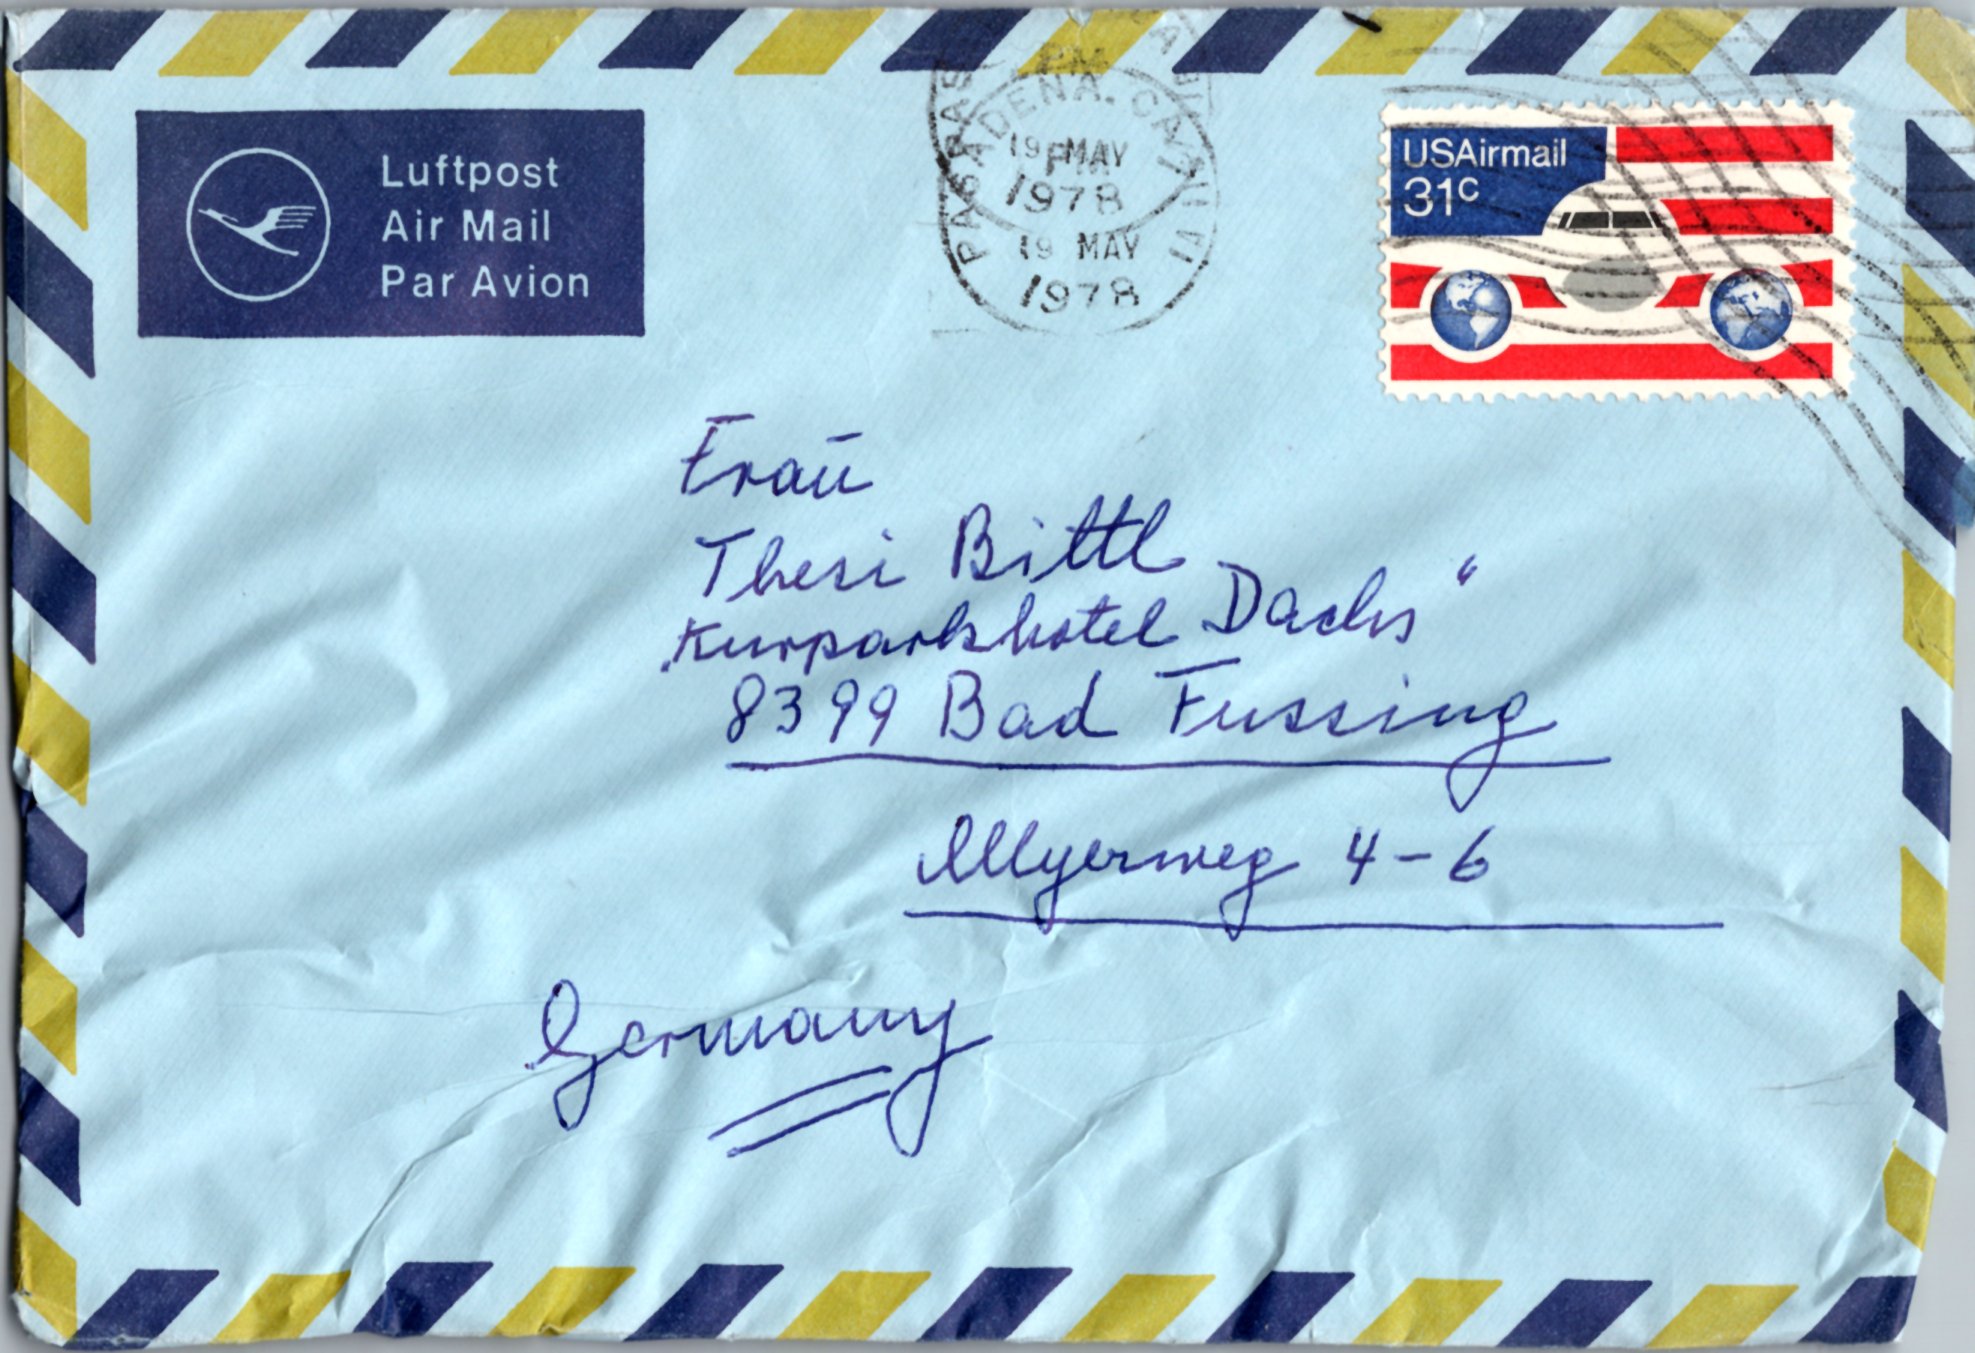 Luftpost
Air Mail
Par Avion
PM
PASADENA, CA
19 MAY
PM
1978
19 MAY
1978
USAirmail
31c
Fraū
Thesi Bittl
„Kurparkhotel Dachs“
8399 Bad Fussing
Allyerweg 4-6
Germany